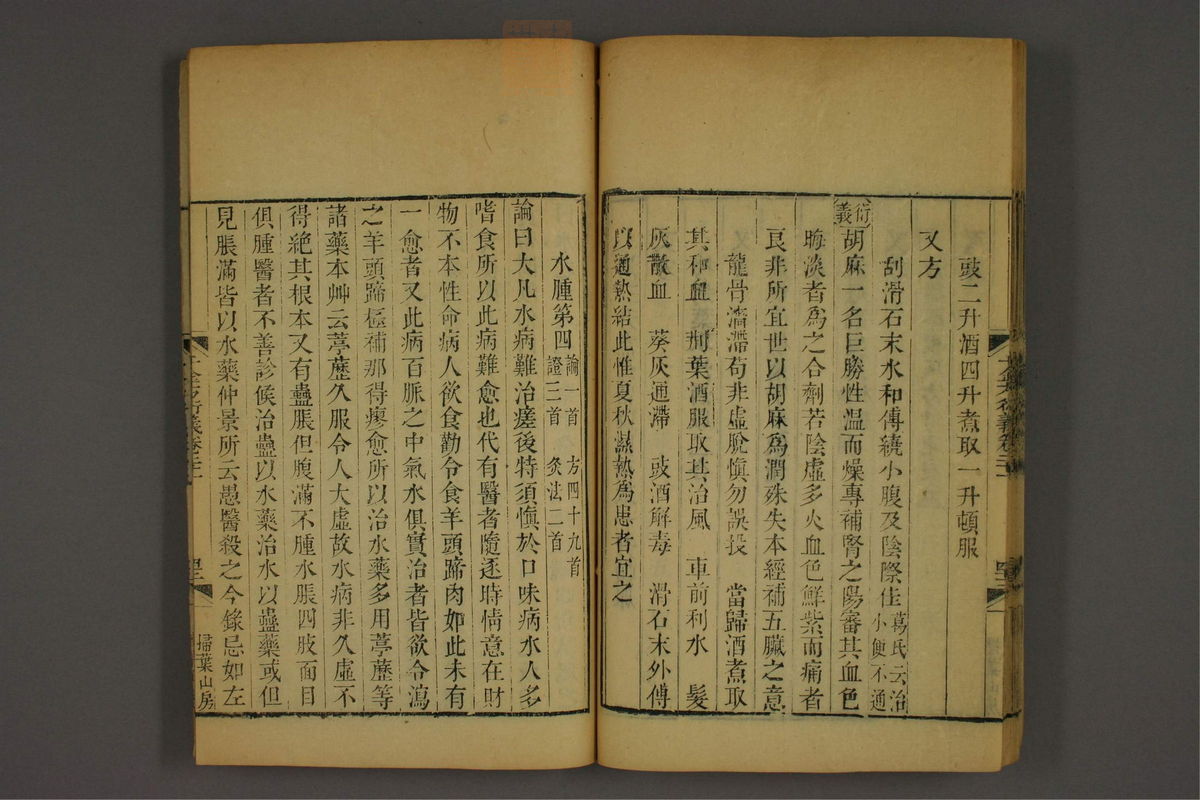 豉二升酒四升煮取一升頓服
又方
刮滑石末水和傅繞小腹及陰際佳葛氏云治小便不通
衍義胡麻一名巨勝性温而燥專補腎之陽審其血色
晦淡者爲之合劑若陰虛多火血色鮮紫而痛者
良非所宜世以胡麻爲潤殊失本經補五臟之意
龍骨濇滯苟非虛脫愼勿誤投　當歸酒煮取
其和血　荆葉酒服取其治風　車前利水　髮
灰散血　葵灰通滯　豉酒解毒　滑石末外傅
以通熱結此惟夏秋濕熱爲患者宜之
水腫第四論一首　方四十九首證三首　灸法二首
論曰大凡水病難治瘥後特須愼於口味病水人多
嗜食所以此病難愈也代有醫者隨逐時情意在財
物不本性命病人欲食勸令食羊頭蹄肉如此未有
一愈者又此病百脈之中氣水俱實治者皆欲令瀉
之羊頭蹄極補那得瘳愈所以治水藥多用葶藶等
諸藥本艸云葶藶久服令人大虛故水病非久虛不
得絶其根本又有蠱脹但腹滿不腫水脹四肢面目
俱腫醫者不善診候治蠱以水藥治水以蠱藥或但
見脹滿皆以水藥仲景所云愚醫殺之今錄忌如左
掃葉山房